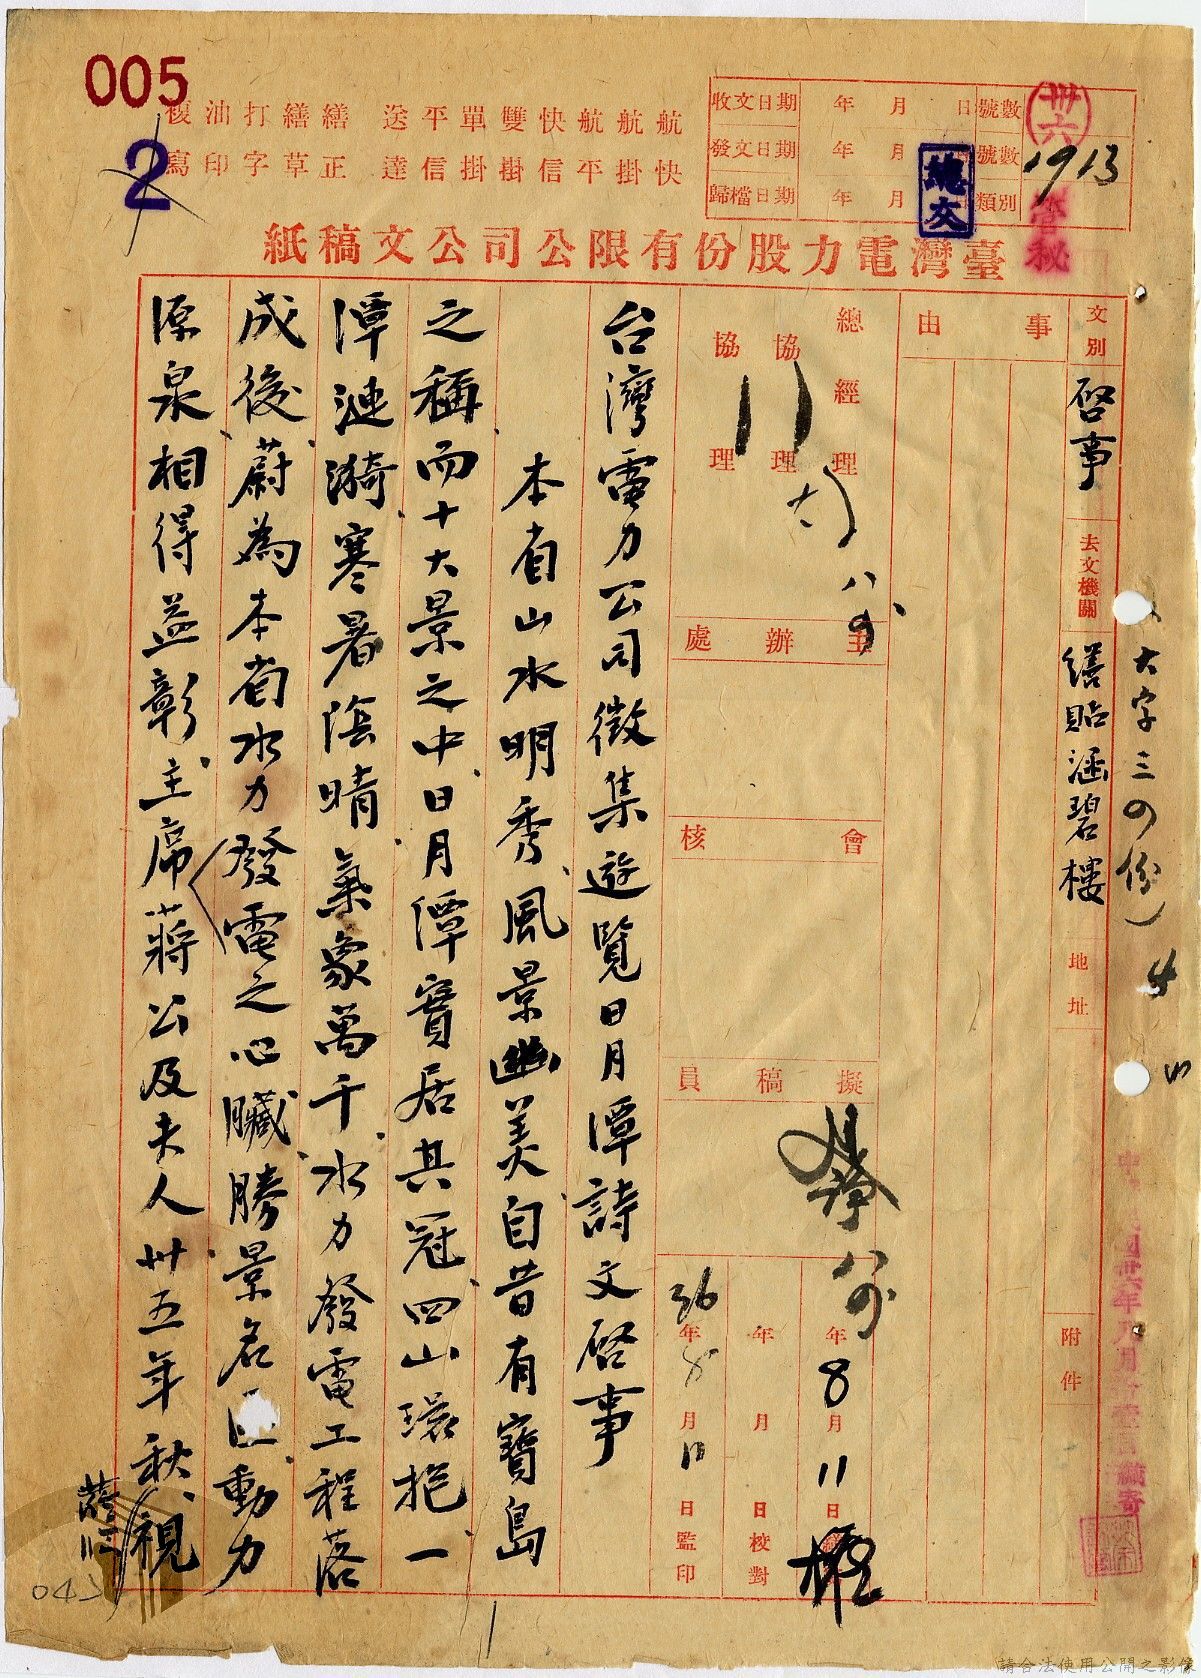 005
2
複寫 油印 打字 繕草 繕正 送達 平信 單掛 雙掛 快信 航平 航掛 航快
收文日期 年 月 日 號數
發文日期 年 月 日 號數
歸檔日期 年 月 日 類別
卅六
1913
總文
管秘
臺灣電力股份有限公司公文稿紙
文別 啓事 去文機關 繕貼涵碧樓 地址 附件
大字三四份)
事由
總經理 協理 協理
主辦處
會核
擬稿員
年8月11日
年 月 日校對
36年8月11日監印
台灣電力公司徵集遊覽日月潭詩文啓事
本省山水明秀風景幽美自昔有寶島
之稱而十大景之中日月潭實居其冠四山環抱一
潭漣漪寒暑陰晴氣象萬千水力發電工程落
成後蔚為本省水力發電之心臟勝景名區動力
源泉相得益彰主席蔣公及夫人卅五年秋
視
041
請合法使用公開之影像